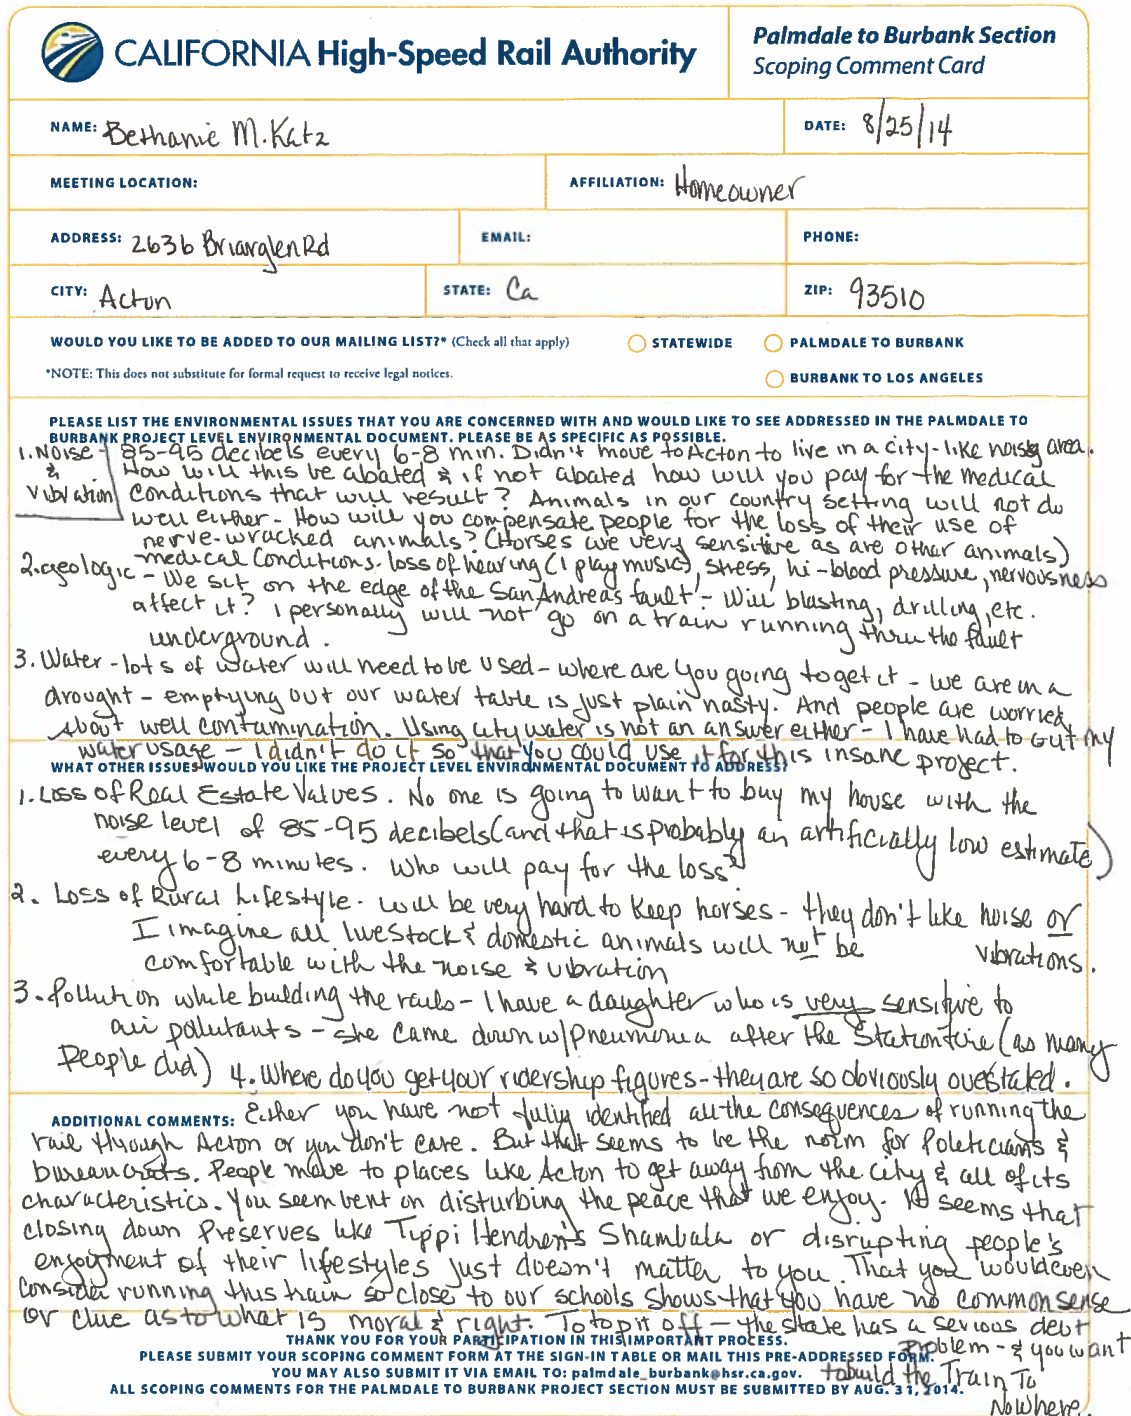 CALIFORNIA High-Speed Rail Authority
Palmdale to Burbank Section
Scoping Comment Card
NAME: Bethanie M. Katz
DATE: 8/25/14
MEETING LOCATION:
AFFILIATION: Homeowner
ADDRESS: 2636 Briarglen Rd
EMAIL:
PHONE:
CITY: Acton
STATE: Ca
ZIP: 93510
WOULD YOU LIKE TO BE ADDED TO OUR MAILING LIST?* (Check all that apply)
STATEWIDE
PALMDALE TO BURBANK
*NOTE: This does not substitute for formal request to receive legal notices.
BURBANK TO LOS ANGELES
PLEASE LIST THE ENVIRONMENTAL ISSUES THAT YOU ARE CONCERNED WITH AND WOULD LIKE TO SEE ADDRESSED IN THE PALMDALE TO
BURBANK PROJECT LEVEL ENVIRONMENTAL DOCUMENT. PLEASE BE AS SPECIFIC AS POSSIBLE.
1. Noise & Vibration - 85-95 decibels every 6-8 min. Didn't move to Acton to live in a city-like noisy area.
How will this be abated & if not abated how will you pay for the medical
conditions that will result? Animals in our country setting will not do
well either - How will you compensate people for the loss of their use of
nerve-wracked animals? (Horses are very sensitive as are other animals)
medical conditions. loss of hearing (I play music), stress, hi-blood pressure, nervousness
2. geologic - We sit on the edge of the San Andreas fault - Will blasting, drilling, etc.
affect it? I personally will not go on a train running thru the fault
underground.
3. Water - lots of water will need to be used - where are you going to get it - we are in a
drought - emptying out our water table is just plain nasty. And people are worried
about well contamination. Using city water is not an answer either - I have had to cut my
water usage - I didn't do it so that you could use it for this insane project.
WHAT OTHER ISSUES WOULD YOU LIKE THE PROJECT LEVEL ENVIRONMENTAL DOCUMENT TO ADDRESS?
1. Loss of Real Estate Values. No one is going to want to buy my house with the
noise level of 85-95 decibels (and that is probably an artificially low estimate)
every 6-8 minutes. Who will pay for the loss?
2. Loss of Rural Lifestyle. will be very hard to keep horses - they don't like noise or
vibrations.
I imagine all livestock & domestic animals will not be
comfortable with the noise & vibration
3. Pollution while building the rails - I have a daughter who is very sensitive to
air pollutants - she came down w/pneumonia after the Station fire (as many
people did) 4. Where do you get your ridership figures - they are so obviously overstated.
ADDITIONAL COMMENTS: Either you have not fully identified all the consequences of running the
rail through Acton or you don't care. But that seems to be the norm for Politicians &
bureaucrats. People move to places like Acton to get away from the city & all of its
characteristics. You seem bent on disturbing the peace that we enjoy. It seems that
closing down Preserves like Tippi Hendren's Shambala or disrupting people's
enjoyment of their lifestyles just doesn't matter to you. That you would even
consider running this train so close to our schools shows that you have no common sense
or clue as to what is moral & right. To top it off - the state has a serious debt
problem - & you want
to build the Train To
Nowhere.
THANK YOU FOR YOUR PARTICIPATION IN THIS IMPORTANT PROCESS.
PLEASE SUBMIT YOUR SCOPING COMMENT FORM AT THE SIGN-IN TABLE OR MAIL THIS PRE-ADDRESSED FORM.
YOU MAY ALSO SUBMIT IT VIA EMAIL TO: palmdale_burbank@hsr.ca.gov.
ALL SCOPING COMMENTS FOR THE PALMDALE TO BURBANK PROJECT SECTION MUST BE SUBMITTED BY AUG. 31, 2014.